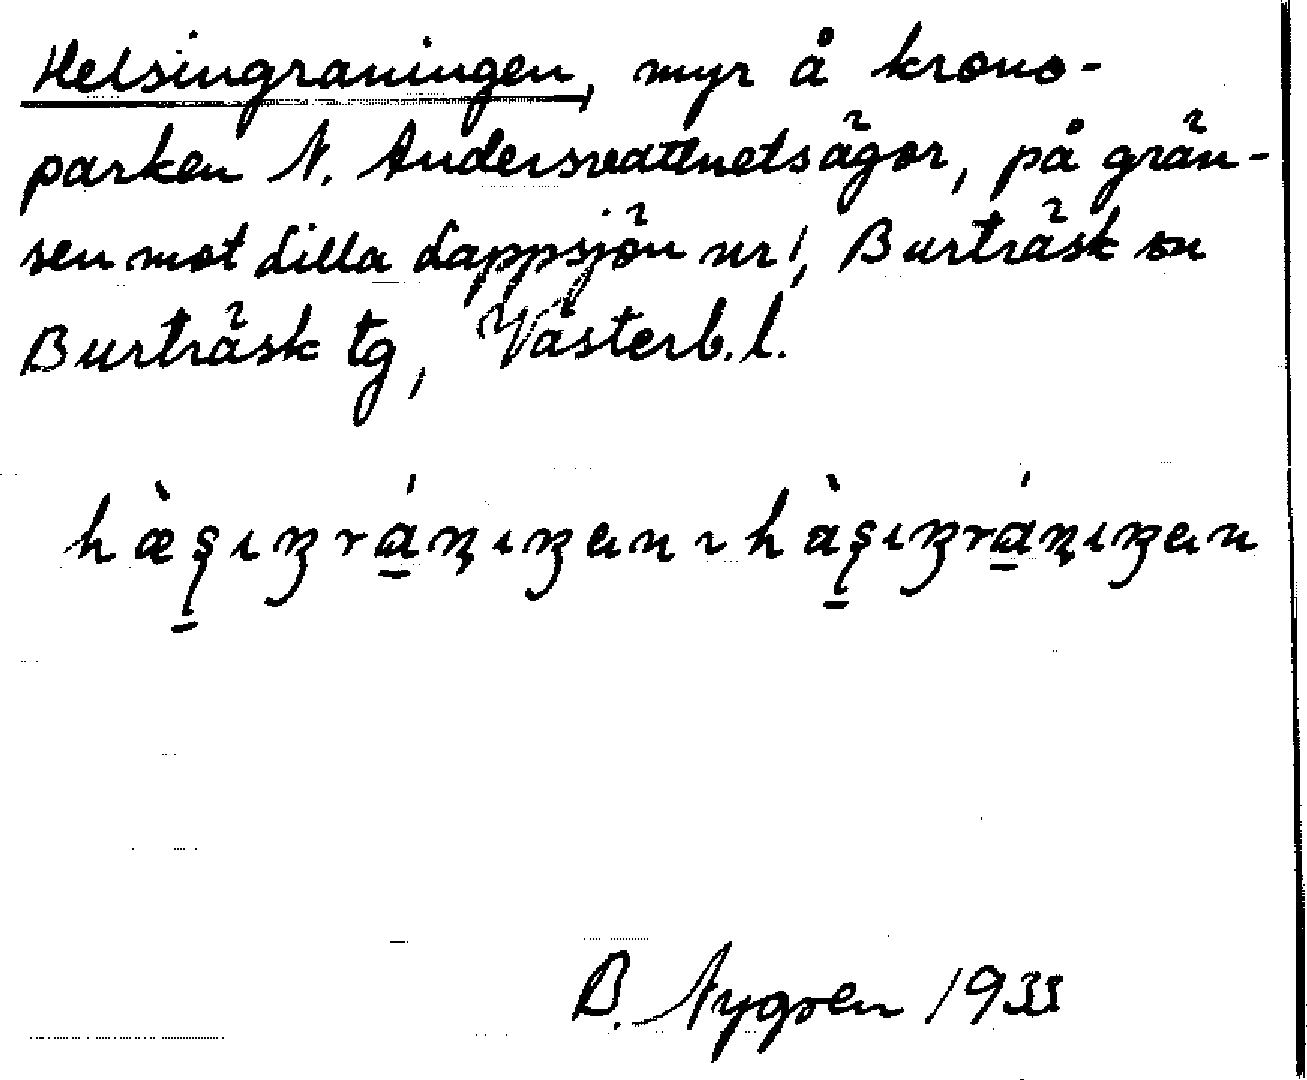 Helsingraningen, myr å krono-
parken N. Andersvattnets ägor, på grän-
sen mot Lilla Lappsjön nr 1, Burträsk sn
Burträsk tg, Västerb. l.
B. Nygren 1933